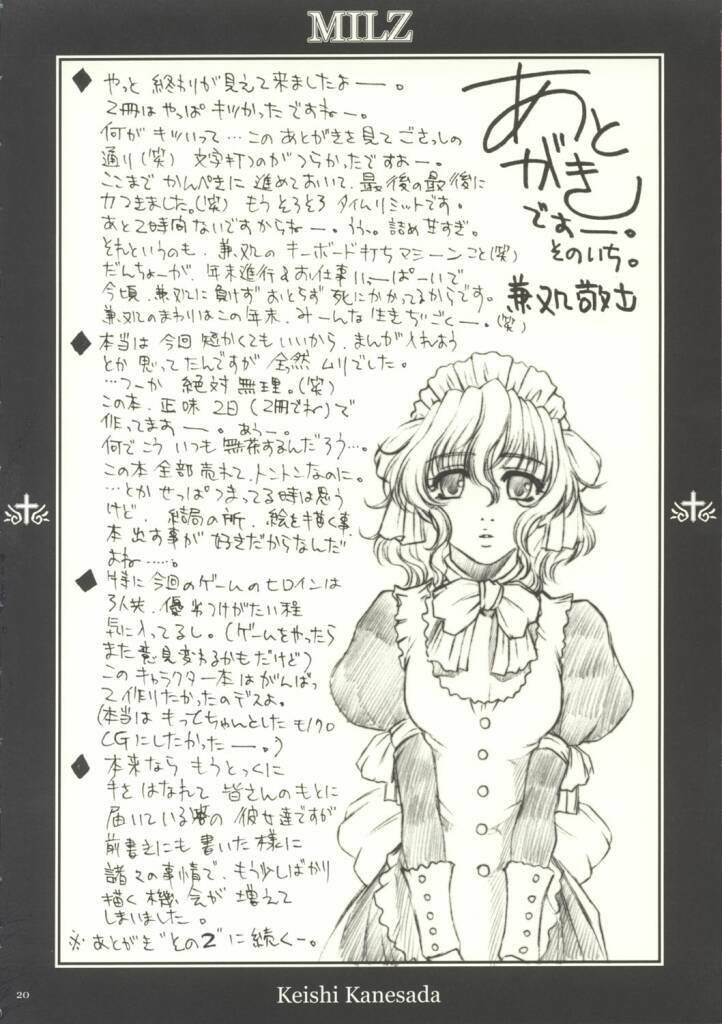 MILZ
あとがき
ですよー。
そのいち。
兼処敬士
◆ やっと 終わりが見えて来ましたよー。
2冊はやっぱ キツかったですねー。
何がキツいって…このあとがきを見てごさっしの
通り(笑) 文字打つのがつらかったですよー。
ここまで かんぺきに 進めておいて、最後の最後に
力つきました。(笑) もう そろそろ タイムリミットです。
あと2時間ないですからねー。うぅ。詰め甘すぎ。
それというのも、兼処の キーボード打ちマシーンこと(笑)
だんちょーが、年末進行&お仕事いっぱーいで
今頃、兼処に負けず おとらず 死にかかってるからです。
兼処のまわりはこの年末、みーんな 生きぢごくー。(笑)
◆ 本当は 今回 短かくてもいいから、まんが入れよう
とか 思ってたんですが 全然 ムリでした。
…つーか 絶対 無理。(笑)
この本、正味 2日(2冊でね)で
作ってますよー。あぅー。
何でこう いつも 無茶するんだろう…。
この本 全部 売れて、トントンなのに。
…とか せっぱつまってる時は思う
けど、結局の所、絵を描く事
本 出す事が 好きだからなんだ
よね……。
◆ 特に 今回のゲームのヒロインは
3人共、優劣つけがたい程
気に入ってるし。(ゲームをやったら
また 意見変わるかもだけど)
このキャラクター本は がんばっ
て作りたかったのデスよ。
(本当は もっとちゃんとした モノクロ
CGにしたかったー。)
◆ 本来なら もうとっくに
手を はなれて 皆さんのもとに
届いている筈の 彼女達ですが
前書きにも 書いた様に
諸々の事情で、もう少しばかり
描く機会が 増えて
しまいました。
※ あとがき"その2"に続くー。
20
Keishi Kanesada